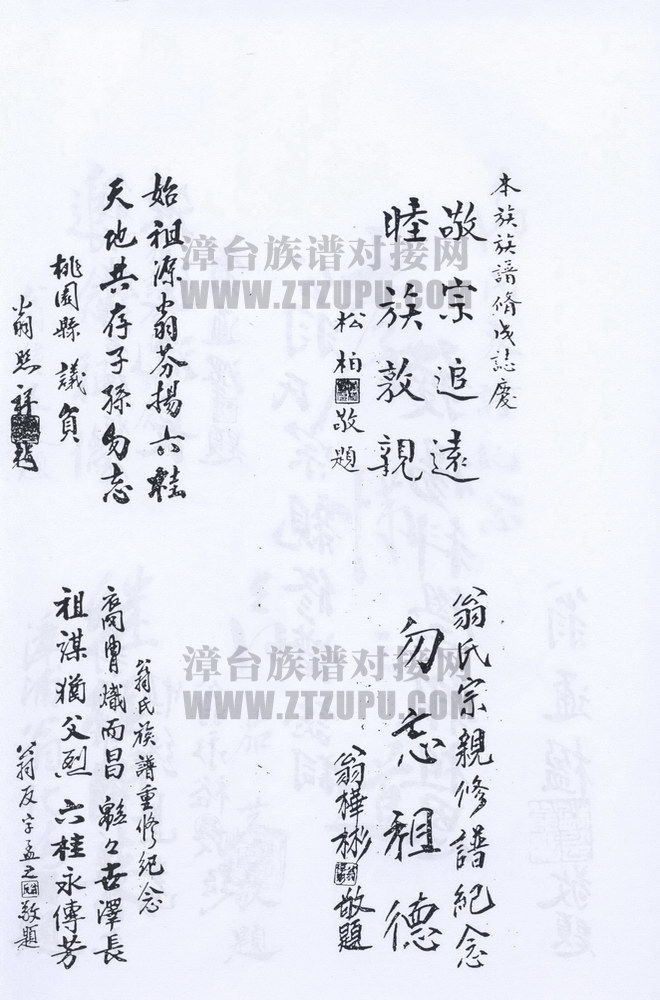 本族族譜修成誌慶
敬宗追遠
睦族敦親
松柏敬題
始祖源翁芬揚六桂
天地共存子孫勿忘
桃園縣議員
翁照祥題
翁氏宗親修譜紀念
勿忘祖德
翁樺彬敬題
翁氏族譜重修紀念
裔胄熾而昌 綿々世澤長
祖謀猶父烈 六桂永傳芳
翁友字孟之敬題
漳台族谱对接网
WWW.ZTZUPU.COM
漳台族谱对接网
WWW.ZTZUPU.COM